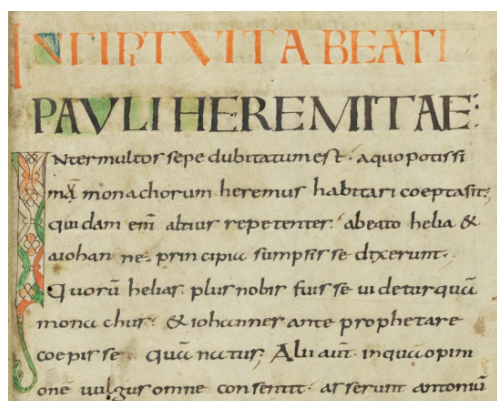 INCIPIT VITA BEATI
PAVLI HEREMITAE:
Inter multos sepe dubitatum est · a quo potissi
mū monachorum heremus habitari coepta sit;
quidam enī altius repetentes · a beato helia &
a iohanne · principiū sumpsisse dixerunt ·
Quorū helias · plus nobis fuisse uidetur quā
monachus · & iohannes ante prophetare
coepisse · quā natus; Alii aūt · in quā opini
onē uulgus omne consentit · asserunt antoniū